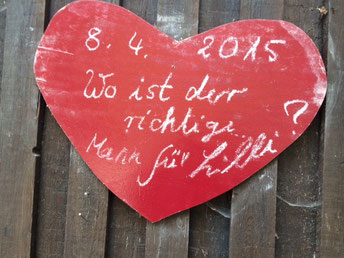 8. 4. 2015
Wo ist der
richtige ?
Mann für Lilli